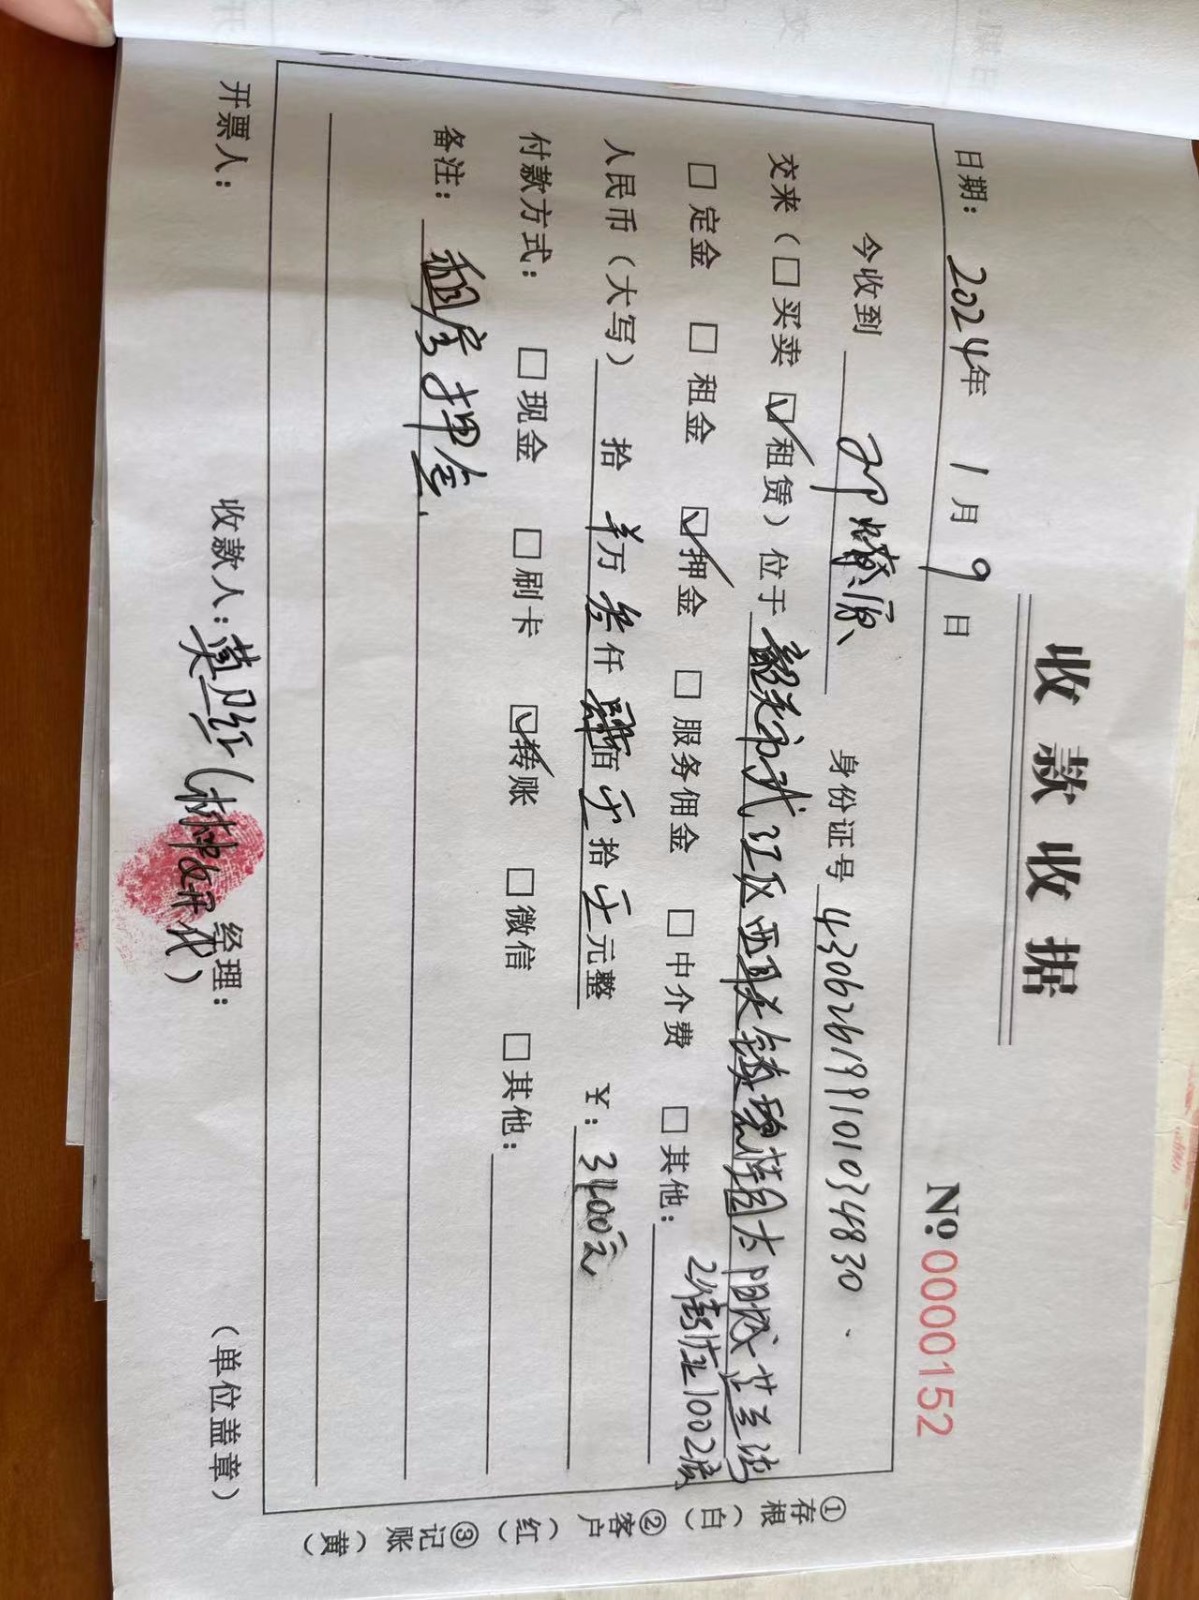 收款收据
日期：2024年 1月 9日 №0000152
今收到 邓 源 身份证号 430626199101034830
交来（□买卖 ☑租赁）位于 韶关市武江区西联镇碧桂园太阳城芷兰湾
□定金 □租金 ☑押金 □服务佣金 □中介费 □其他： 2街1座1002房
人民币（大写） 拾 万 叁仟 肆佰 拾 元整 ￥：3400元
付款方式： □现金 □刷卡 ☑转账 □微信 □其他：
备注： 租房押金
开票人： 收款人： 经理： （单位盖章）
①存根（白）②客户（红）③记账（黄）